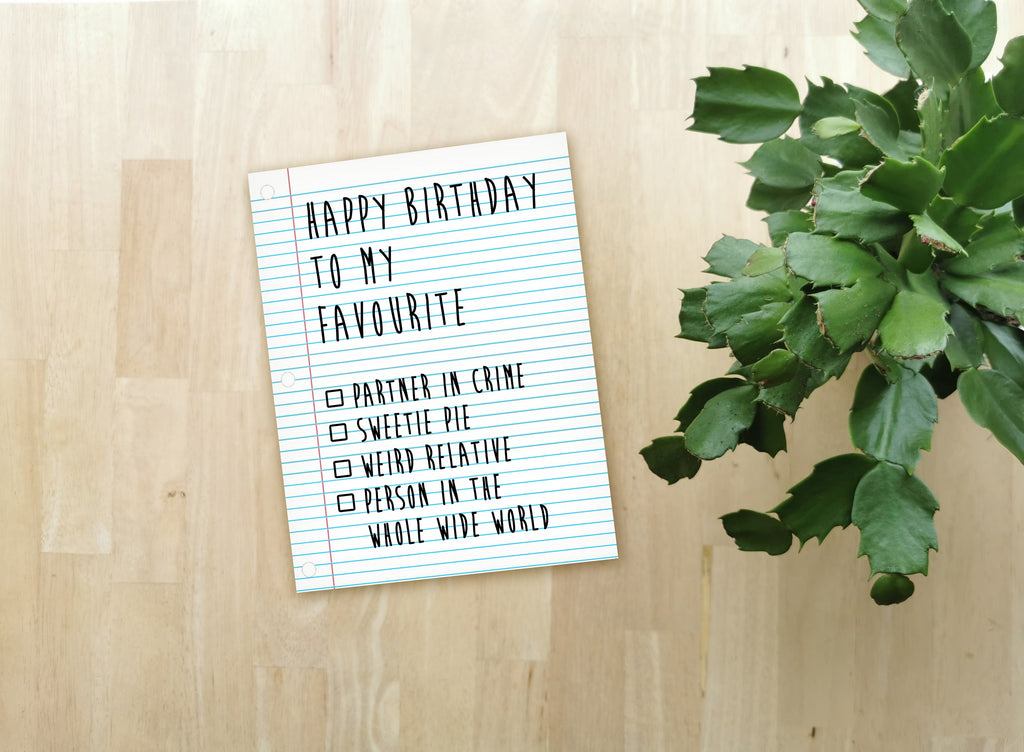 HAPPY BIRTHDAY
TO MY
FAVOURITE
PARTNER IN CRIME
SWEETIE PIE
WEIRD RELATIVE
PERSON IN THE
WHOLE WIDE WORLD